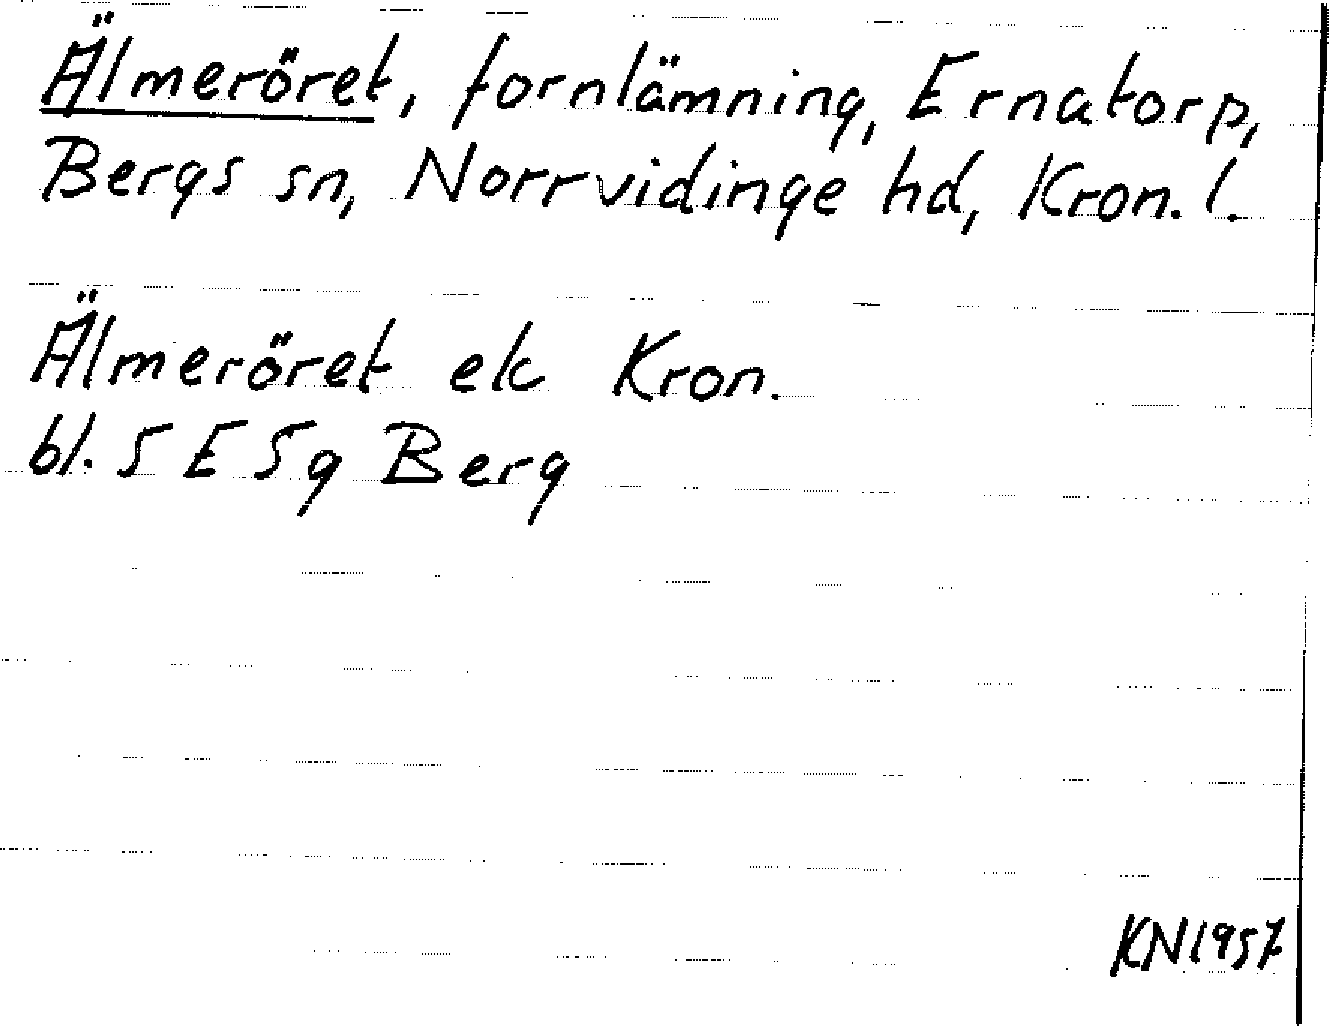 Älmeröret, fornlämning, Ernatorp,
Bergs sn, Norrvidinge hd, Kron. l.
Älmeröret ek Kron.
bl. 5 E 5g Berg
KN1957